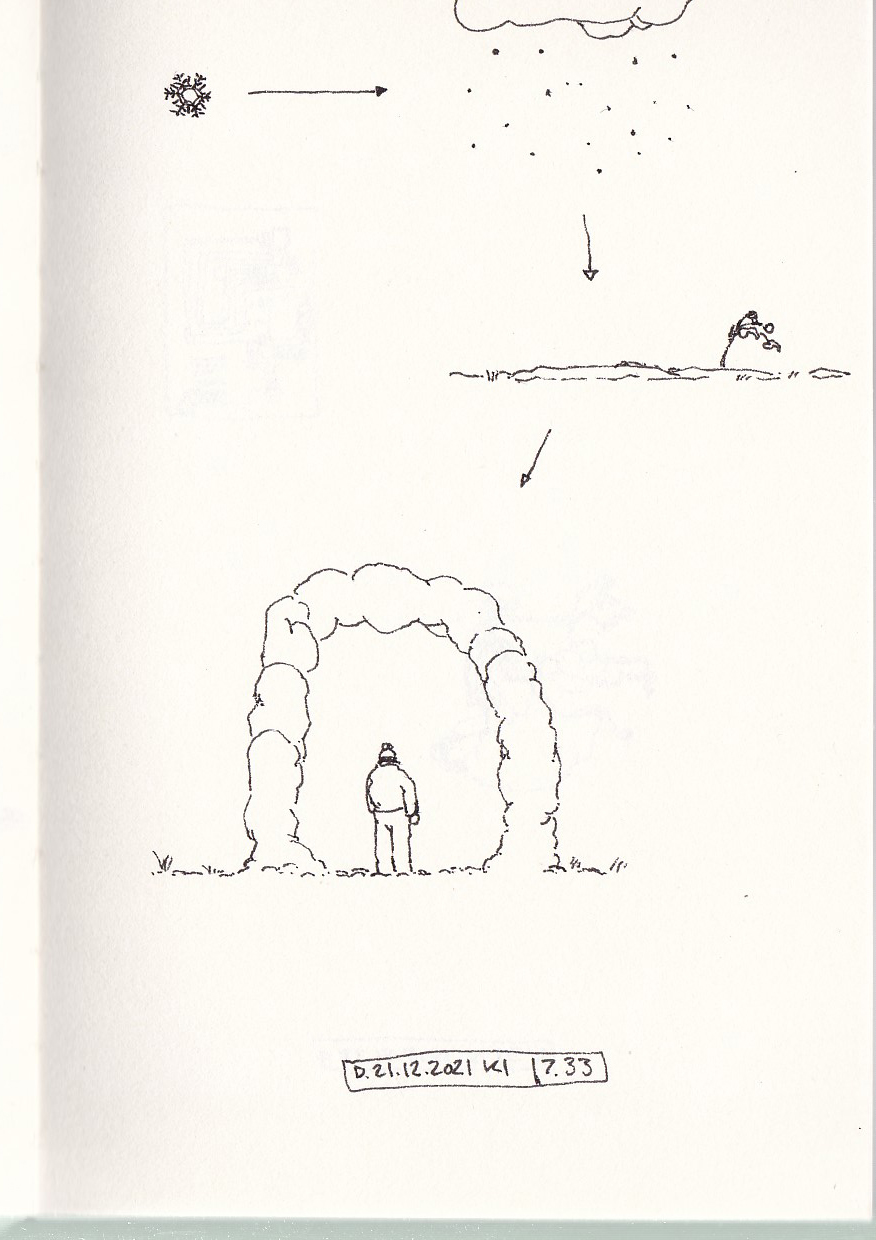 D. 21.12.2021 Kl 17.33